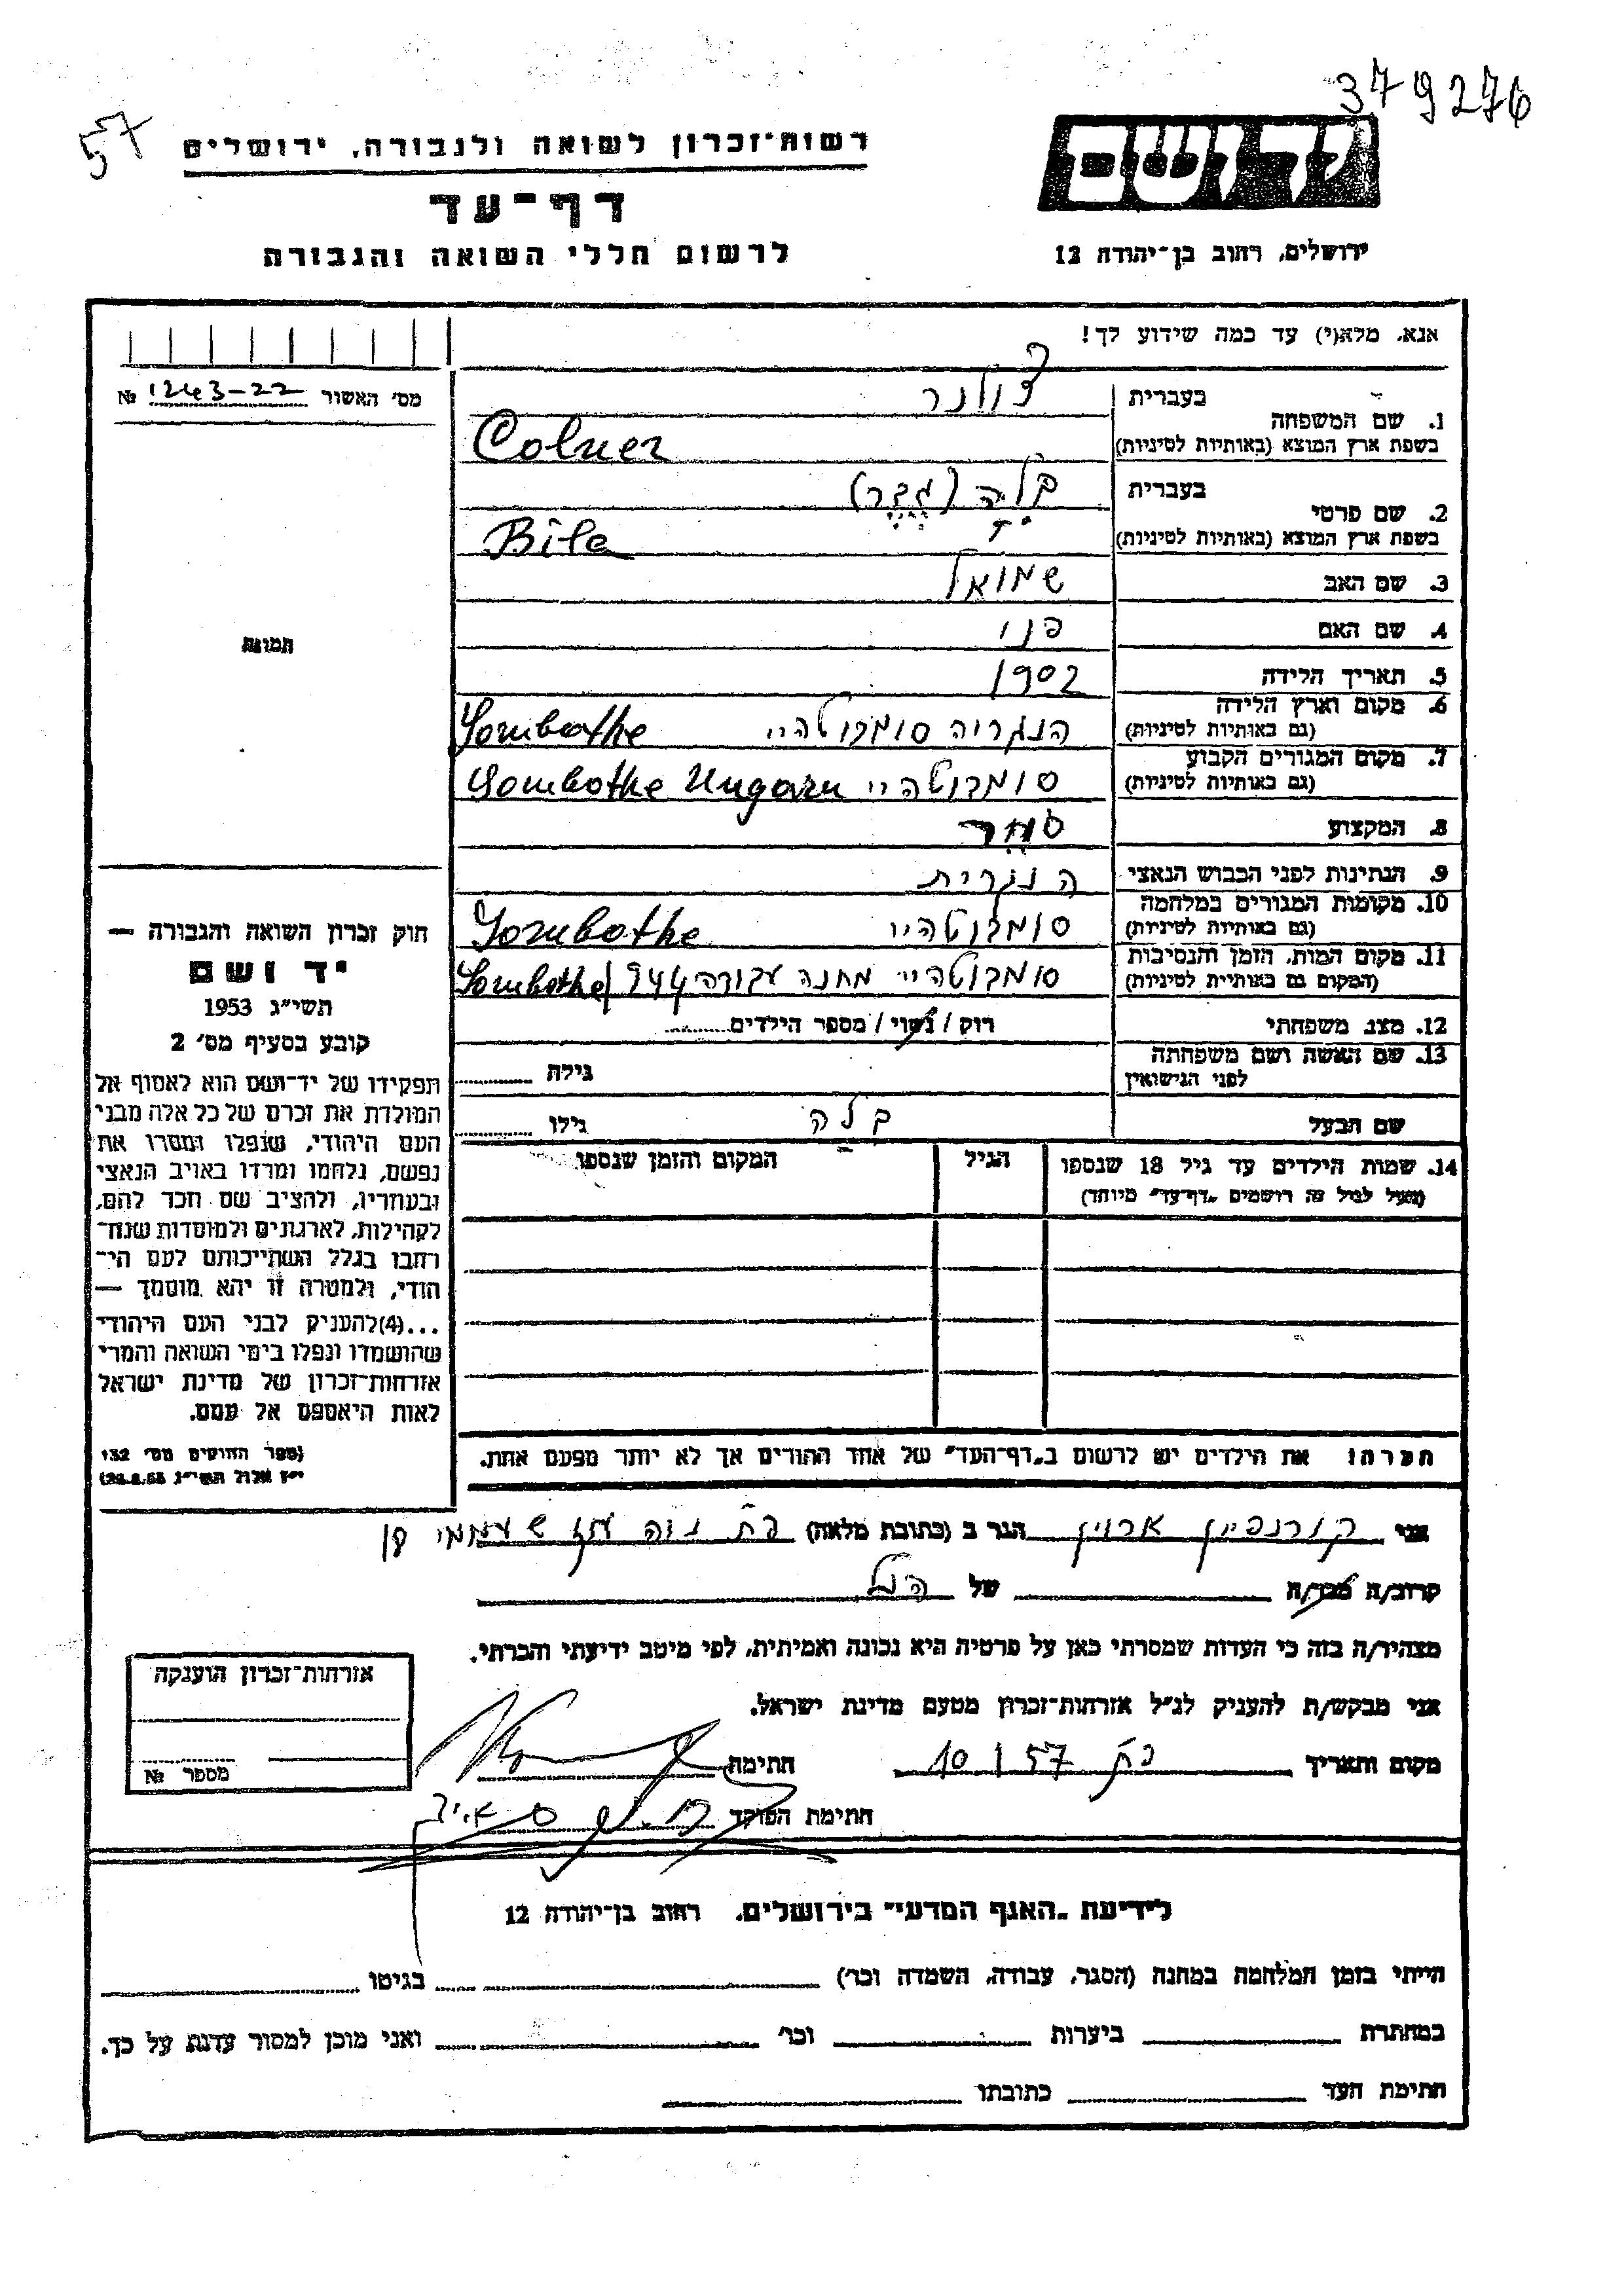 379276
57
רשות-זכרון לשואה ולגבורה, ירושלים
יד ושם
דף-עד
לרשום חללי השואה והגבורה
ירושלים, רחוב בן-יהודה 12
אנא, מלא(י) עד כמה שידוע לך!
מס' האשור № 1243-22
1. שם המשפחה
בעברית צולנר
בשפת ארץ המוצא (באותיות לטיניות) Colner
2. שם פרטי
בעברית בלה (גבר)
בשפת ארץ המוצא (באותיות לטיניות) Bila
3. שם האב שמואל
4. שם האם פני
5. תאריך הלידה 1902
6. מקום וארץ הלידה
(גם באותיות לטיניות) הנגריה סומבוטהיי Sombothe
7. מקום המגורים הקבוע
(גם באותיות לטיניות) סומבוטהיי Sombothe Ungarn
8. המקצוע סוחר
9. הנתינות לפני הכבוש הנאצי הנגרית
10. מקומות המגורים במלחמה
(גם באותיות לטיניות) סומבוטהיי Sombothe
11. מקום המות, הזמן והנסיבות
(המקום גם באותיות לטיניות) סומבוטהיי מחנה עבודה 944 Sombothe
12. מצב משפחתי רוק / נשוי / מספר הילדים
13. שם האשה ושם משפחתה
לפני הנישואין
גילה
שם הבעל בלה גילו
14. שמות הילדים עד גיל 18 שנספו
(מעל לגיל זה רושמים "דף-עד" מיוחד)
הגיל
המקום והזמן שנספו
הערה: את הילדים יש לרשום ב"דף-העד" של אחד ההורים אך לא יותר מפעם אחת.
תמונה
חוק זכרון השואה והגבורה —
יד ושם
תשי"ג 1953
קובע בסעיף מס' 2
תפקידו של יד-ושם הוא לאסוף אל
המולדת את זכרם של כל אלה מבני
העם היהודי, שנפלו ומסרו את
נפשם, נלחמו ומרדו באויב הנאצי
ובעוזריו, ולהציב שם וזכר להם,
לקהילות, לארגונים ולמוסדות שנח-
רבו בגלל השתייכותם לעם הי-
הודי, ולמטרה זו יהא מוסמך —
...(4) להעניק לבני העם היהודי
שהושמדו ונפלו בימי השואה והמרי
אזרחות-זכרון של מדינת ישראל
לאות היאספם אל עמם.
(ספר החוקים מס' 132
י"ז אלול תשי"ג 28.8.53)
אני קורנפיין ארוין הגר ב (כתובת מלאה) פת נוה עוז
קרוב/ה מכר/ה של הנ"ל
מצהיר/ה בזה כי העדות שמסרתי כאן על פרטיה היא נכונה ואמיתית, לפי מיטב ידיעתי והכרתי.
אני מבקש/ת להעניק לנ"ל אזרחות-זכרון מטעם מדינת ישראל.
מקום ותאריך פת 10/57 חתימה
חתימת הפוקד
אזרחות-זכרון הוענקה
מספר №
לידיעת "האגף המדעי" בירושלים, רחוב בן-יהודה 12
הייתי בזמן המלחמה במחנה (הסגר, עבודה, השמדה וכו') בגיטו
במחתרת ביערות וכו' ואני מוכן למסור עדות על כך.
חתימת העד כתובתו